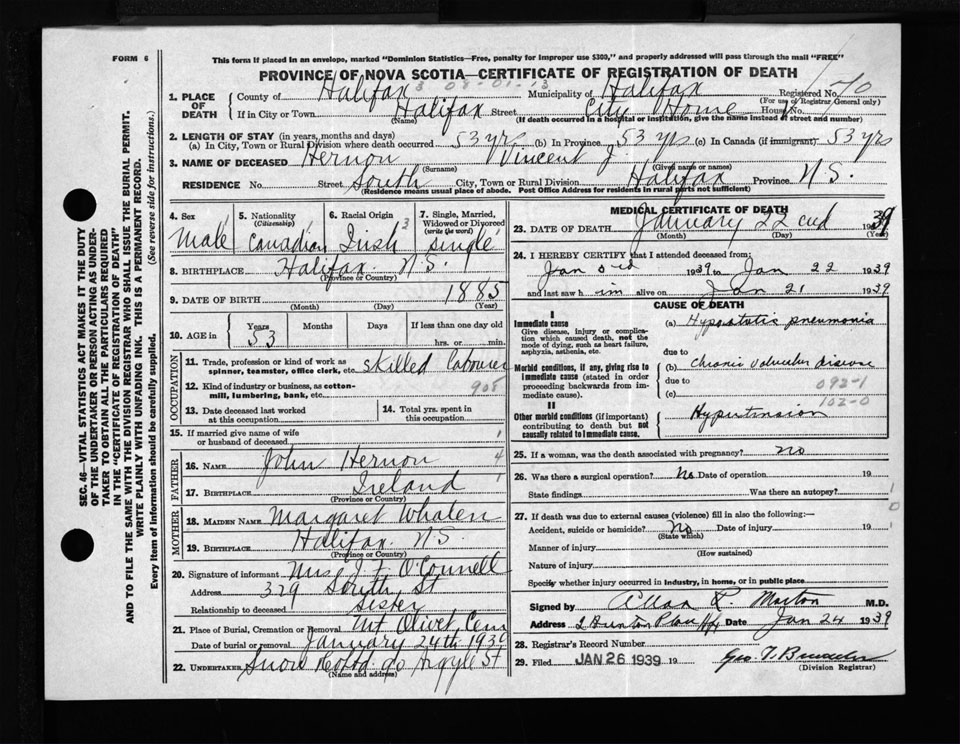 FORM 6
This form if placed in an envelope, marked "Dominion Statistics—Free, penalty for improper use $300," and properly addressed will pass through the mail "FREE"
PROVINCE OF NOVA SCOTIA—CERTIFICATE OF REGISTRATION OF DEATH
SEC. 46—VITAL STATISTICS ACT MAKES IT THE DUTY
OF THE UNDERTAKER OR PERSON ACTING AS UNDER-
TAKER TO OBTAIN ALL THE PARTICULARS REQUIRED
IN THE "CERTIFICATE OF REGISTRATION OF DEATH"
AND TO FILE THE SAME WITH THE DIVISION REGISTRAR WHO SHALL ISSUE THE BURIAL PERMIT.
WRITE PLAINLY WITH UNFADING INK. THIS IS A PERMANENT RECORD.
Every item of information should be carefully supplied. (See reverse side for instructions.)
1. PLACE OF DEATH
County of Halifax Municipality of Halifax Registered No. 70
(For use of Registrar General only)
If in City or Town Halifax Street City Home House No.
(Name) (If death occurred in a hospital or institution, give the name instead of street and number)
2. LENGTH OF STAY (in years, months and days)
(a) In City, Town or Rural Division where death occurred 53 yrs (b) In Province 53 yrs (c) In Canada (if immigrant) 53 yrs
3. NAME OF DECEASED Hernon Vincent J.
(Surname) (Given name or names)
RESIDENCE No. Street South City, Town or Rural Division Halifax Province N.S.
(Residence means usual place of abode. Post Office Address for residents in rural parts not sufficient)
4. Sex
Male
5. Nationality
(Citizenship)
Canadian
6. Racial Origin
Irish 3
7. Single, Married,
Widowed or Divorced
(write the word)
single
8. BIRTHPLACE Halifax N.S.
(Province or Country)
9. DATE OF BIRTH 1885
(Month) (Day) (Year)
10. AGE in Years Months Days If less than one day old
53 hrs. or min.
OCCUPATION
11. Trade, profession or kind of work as
spinner, teamster, office clerk, etc. skilled labourer
12. Kind of industry or business, as cotton-
mill, lumbering, bank, etc. 908
13. Date deceased last worked
at this occupation
14. Total yrs. spent in
this occupation
15. If married give name of wife
or husband of deceased
FATHER
16. NAME John Hernon 4
17. BIRTHPLACE Ireland
(Province or Country)
MOTHER
18. MAIDEN NAME Margaret Whalen
19. BIRTHPLACE Halifax N.S.
(Province or Country)
20. Signature of informant Mrs J. F. O'Connell
Address 329 South St
Relationship to deceased Sister
21. Place of Burial, Cremation or Removal Mt Olivet Cem
Date of burial or removal January 24th 1939
22. UNDERTAKER Snow & Co Ltd 90 Argyle St
(Name and address)
MEDICAL CERTIFICATE OF DEATH
23. DATE OF DEATH January 22nd 1939
(Month) (Day) (Year)
24. I HEREBY CERTIFY that I attended deceased from:
Jan 3rd 1939 to Jan 22 1939
and last saw him alive on Jan 21 1939
CAUSE OF DEATH
I
Immediate cause
Give disease, injury or complica-
tion which caused death, not the
mode of dying, such as heart failure,
asphyxia, asthenia, etc.
(a) Hypostatic pneumonia
due to
Morbid conditions, if any, giving rise to
immediate cause (stated in order
proceeding backwards from im-
mediate cause).
(b) Chronic Valvular Disease
due to 092-1
(c) 102-0
II
Other morbid conditions (if important)
contributing to death but not
causally related to immediate cause.
Hypertension
25. If a woman, was the death associated with pregnancy? no
26. Was there a surgical operation? No Date of operation 19
State findings Was there an autopsy?
27. If death was due to external causes (violence) fill in also the following:—
Accident, suicide or homicide? No Date of injury 19
(State which)
Manner of injury
(How sustained)
Nature of injury
Specify whether injury occurred in industry, in home, or in public place
Signed by Allan R. Morton M.D.
Address Hfx Date Jan 24 1939
28. Registrar's Record Number
29. Filed JAN 26 1939 19
(Division Registrar)